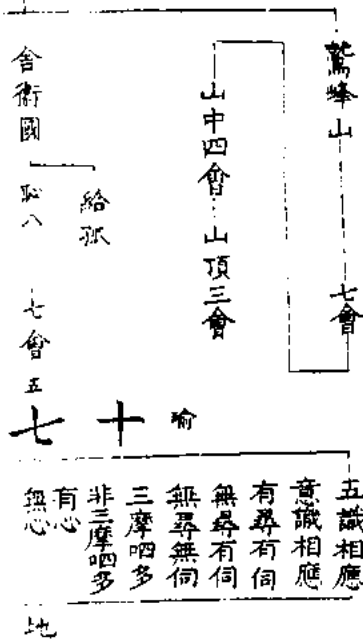 鷲峰山 七會
山中四會 山頂三會
給孤
舍衛國 七會 五
瑜
十
七
五識相應
意識相應
有尋有伺
無尋有伺
無尋無伺
三摩呬多
非三摩呬多
有心
無心
地